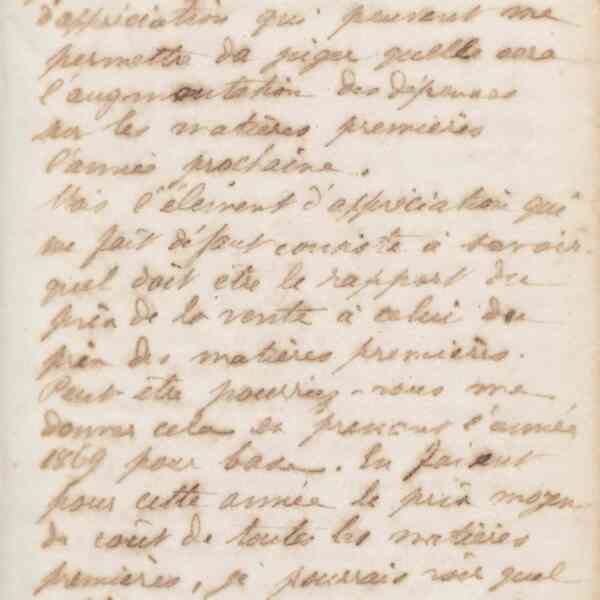 d'appréciation qui peuvent me
permettre de juger quelle sera
l'augmentation des dépenses
sur les matières premières
l'année prochaine.
Mais l'élément d'appréciation qui
me fait défaut consiste à savoir
quel doit être le rapport du
prix de la vente à celui du
prix des matières premières.
Peut-être pourriez-vous me
donner cela en prenant l'année
1869 pour base. En faisant
pour cette année le prix moyen
du coût de toutes les matières
premières, je pourrais voir quel